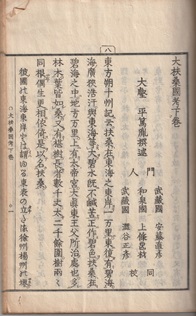 大扶桑國考下卷
大壑 平篤胤撰述
門
人
武藏國 安藤直彦
和泉國
武藏國 澁谷正彦
同
校
東方朔十洲記云扶桑在東海之東岸一万里東復有碧海
海廣狹浩汗與東海等大碧水既不鹹苦正作碧色扶桑在
碧海之中地方万里上有太帝宮太眞東王父所治處也多
林木葉皆如桑又有椹樹長者數千丈大二千餘圍樹兩
同根偶生更相依倚是以名扶桑
大扶桑國考下卷